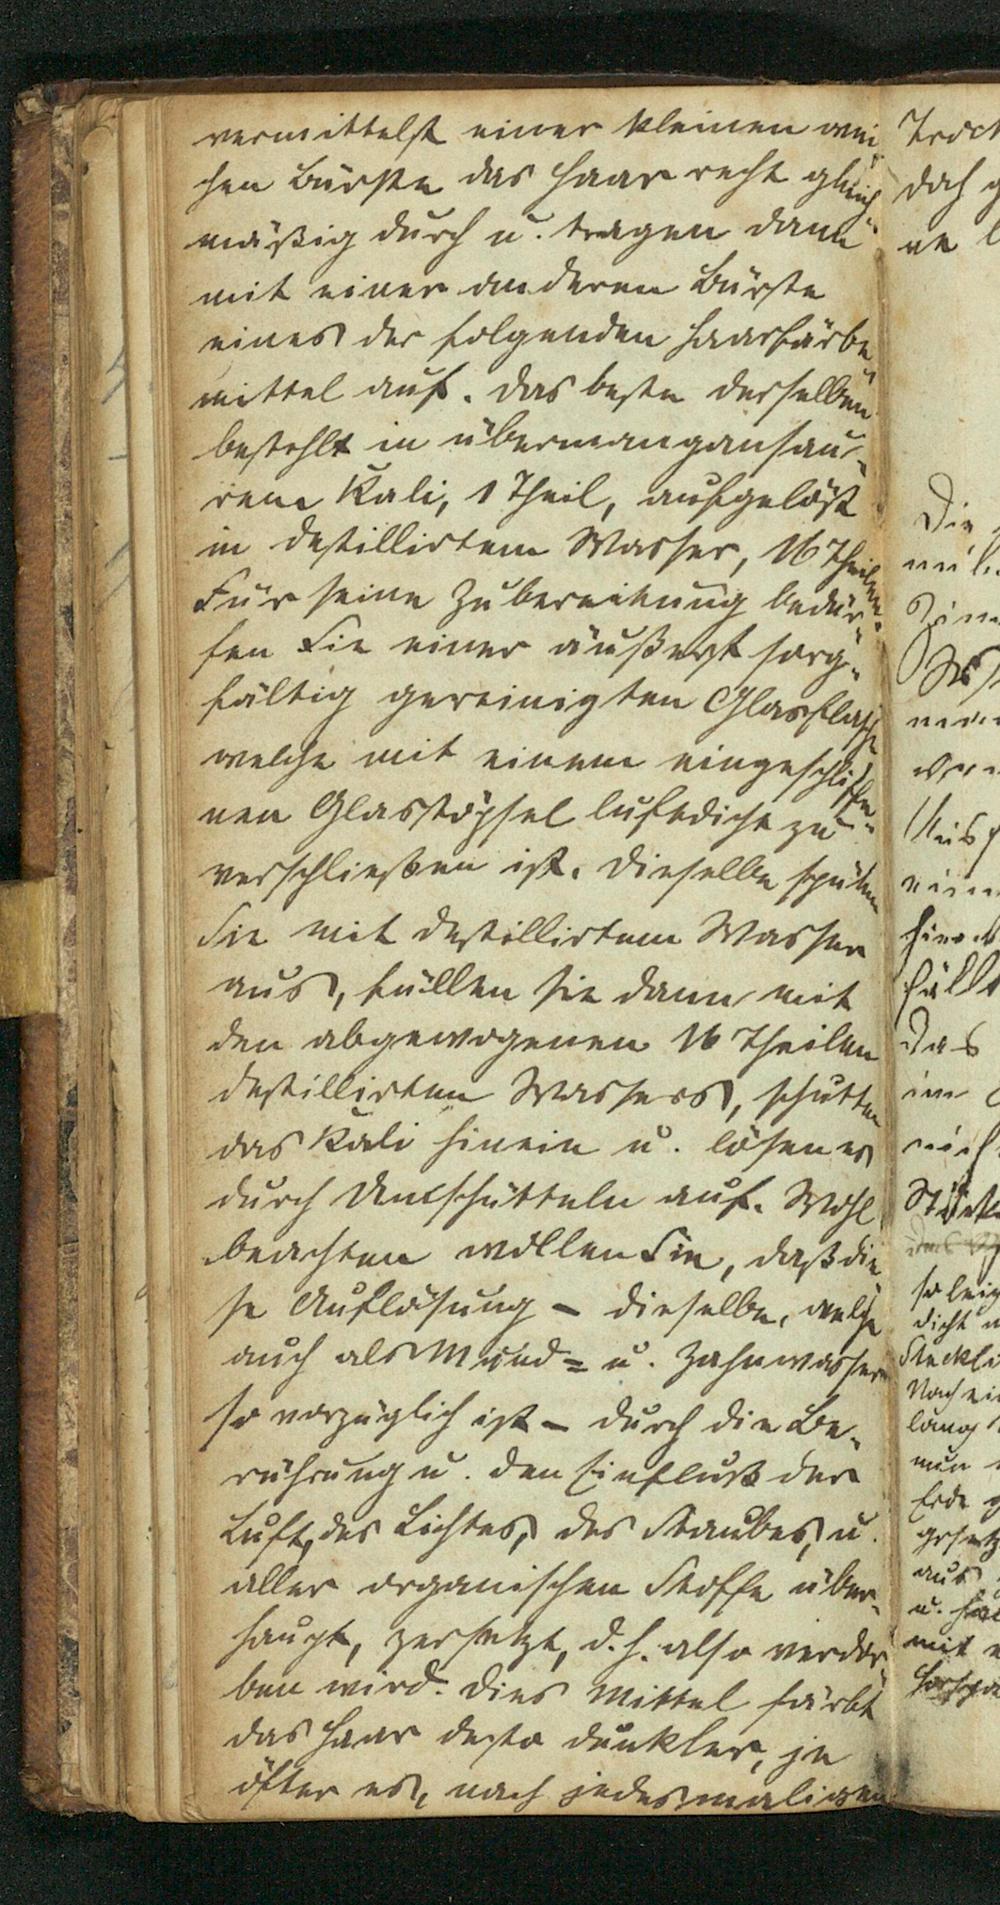 vermittelst einer kleinen wei-
chen Bürste das Haar recht gleich-
mäßig durch u. tragen dann
mit einer anderen Bürste
eines der folgenden Haarfärbe-
mittel auf. Das beste derselben
besteht in übermangansau-
rem Kali, 1 Theil, aufgelöst
in destillirtem Wasser, 16 Theilen.
Für seine Zubereitung bedür-
fen Sie einer äußerst sorg-
fältig gereinigten Glasflasche
welche mit einem eingeschliffe-
nen Glasstöpsel luftdicht zu
verschließen ist. Dieselbe spülen
Sie mit destillirtem Wasser
aus, füllen sie dann mit
den abgewogenen 16 Theilen
destillirten Wassers, schütten
das Kali hinein u. lösen es
durch Umschütteln auf. Wohl
beachten wollen Sie, daß die-
se Auflösung - dieselbe, welche
auch als Mund= u. Zahnwasser
so vorzüglich ist - durch die Be-
rührung u. den Einfluß der
Luft, des Lichtes, des Staubes, u.
aller organischen Stoffe über-
haupt, zersetzt, d. h. also verdor-
ben wird. Dies Mittel färbt
das Haar desto dunkler, je
öfter es, nach jedesmaligem
doch
Die
Das
so leig
dicht
Nach
lang
nun
Erde
gesetz
aus
mit